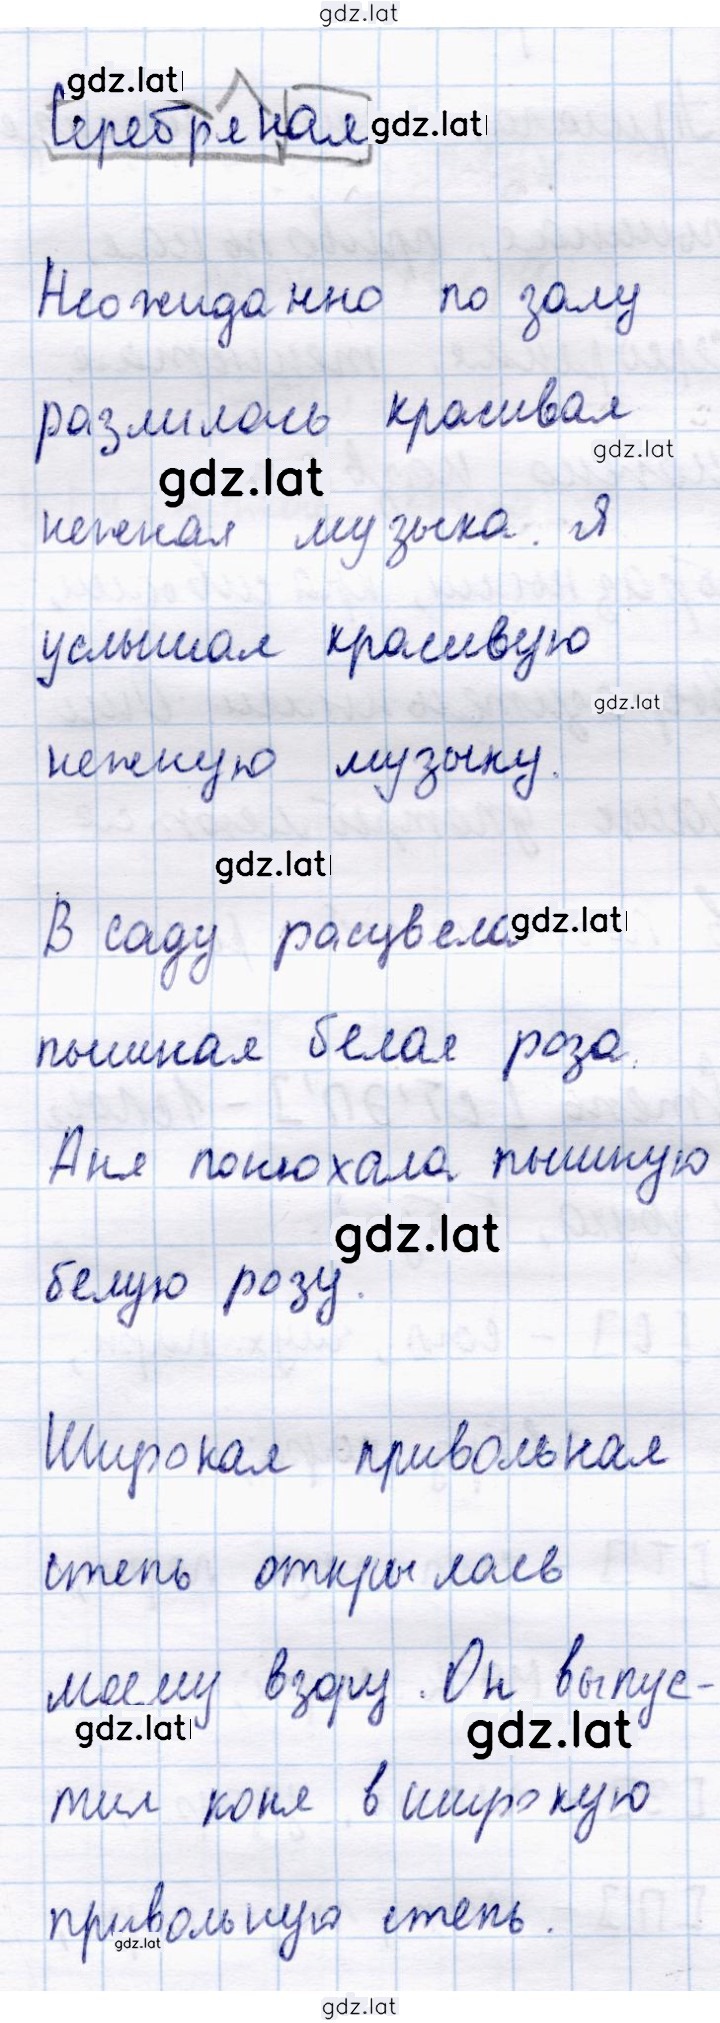 gdz.lat
gdz.lat
Серебряная gdz.lat
Неожиданно по залу
разлилась красивая
gdz.lat
gdz.lat
нежная музыка. Я
услышал красивую
gdz.lat
нежную музыку.
gdz.lat
В саду расцвела gdz.lat
пышная белая роза.
Аня понюхала пышную
gdz.lat
белую розу.
Широкая привольная
степь открылась
моему взору. Он выпус-
gdz.lat gdz.lat
тил коня в широкую
привольную степь.
gdz.lat
gdz.lat